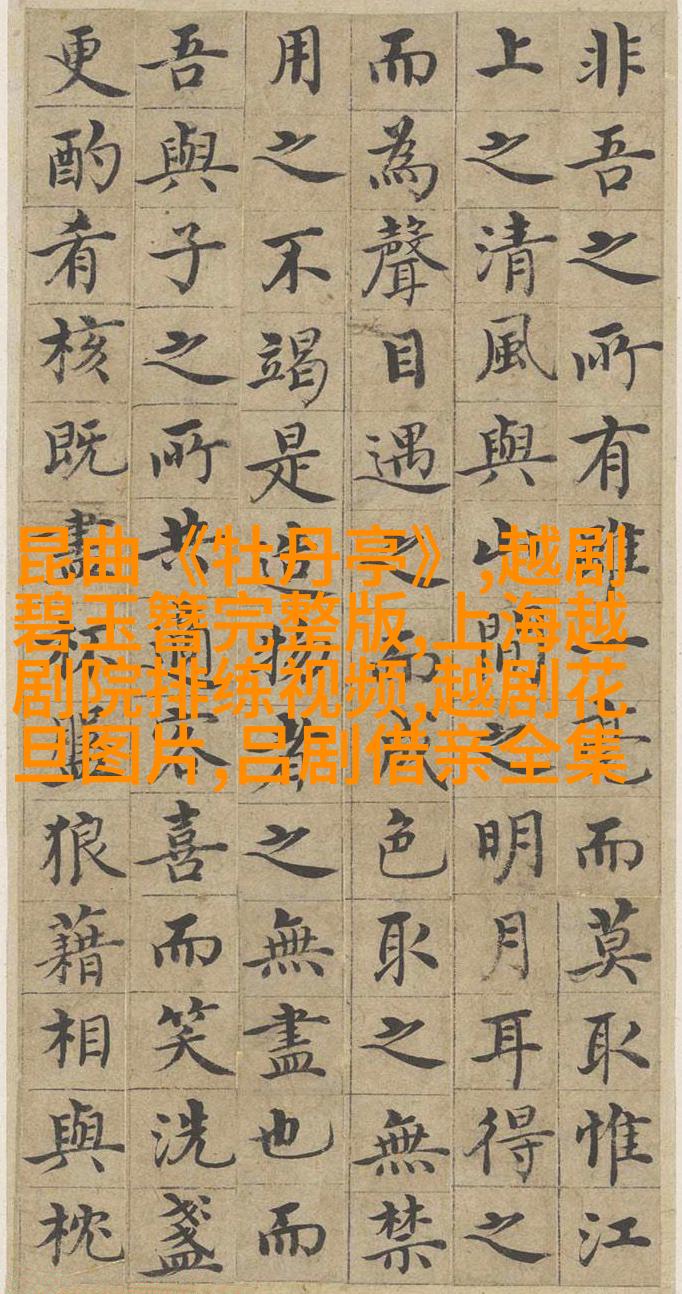 非吾之所有雖一毫而莫取惟江
上之清風與山間之明月耳得之
而為聲目遇之而成色取之無禁
用之不竭是造物者之無盡也而
吾與子之所共適客喜而笑洗盞
更酌肴核既盡杯盤狼藉相與枕
昆曲《牡丹亭》,越剧
碧玉簪完整版,上海越
剧院排练视频,越剧花
旦图片,吕剧借亲全集